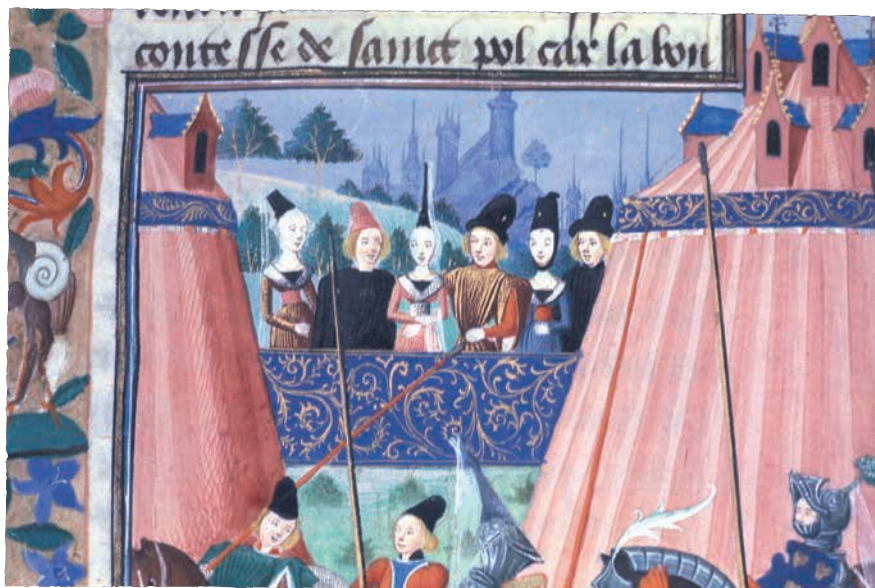 contesse de sainct pol car la bon